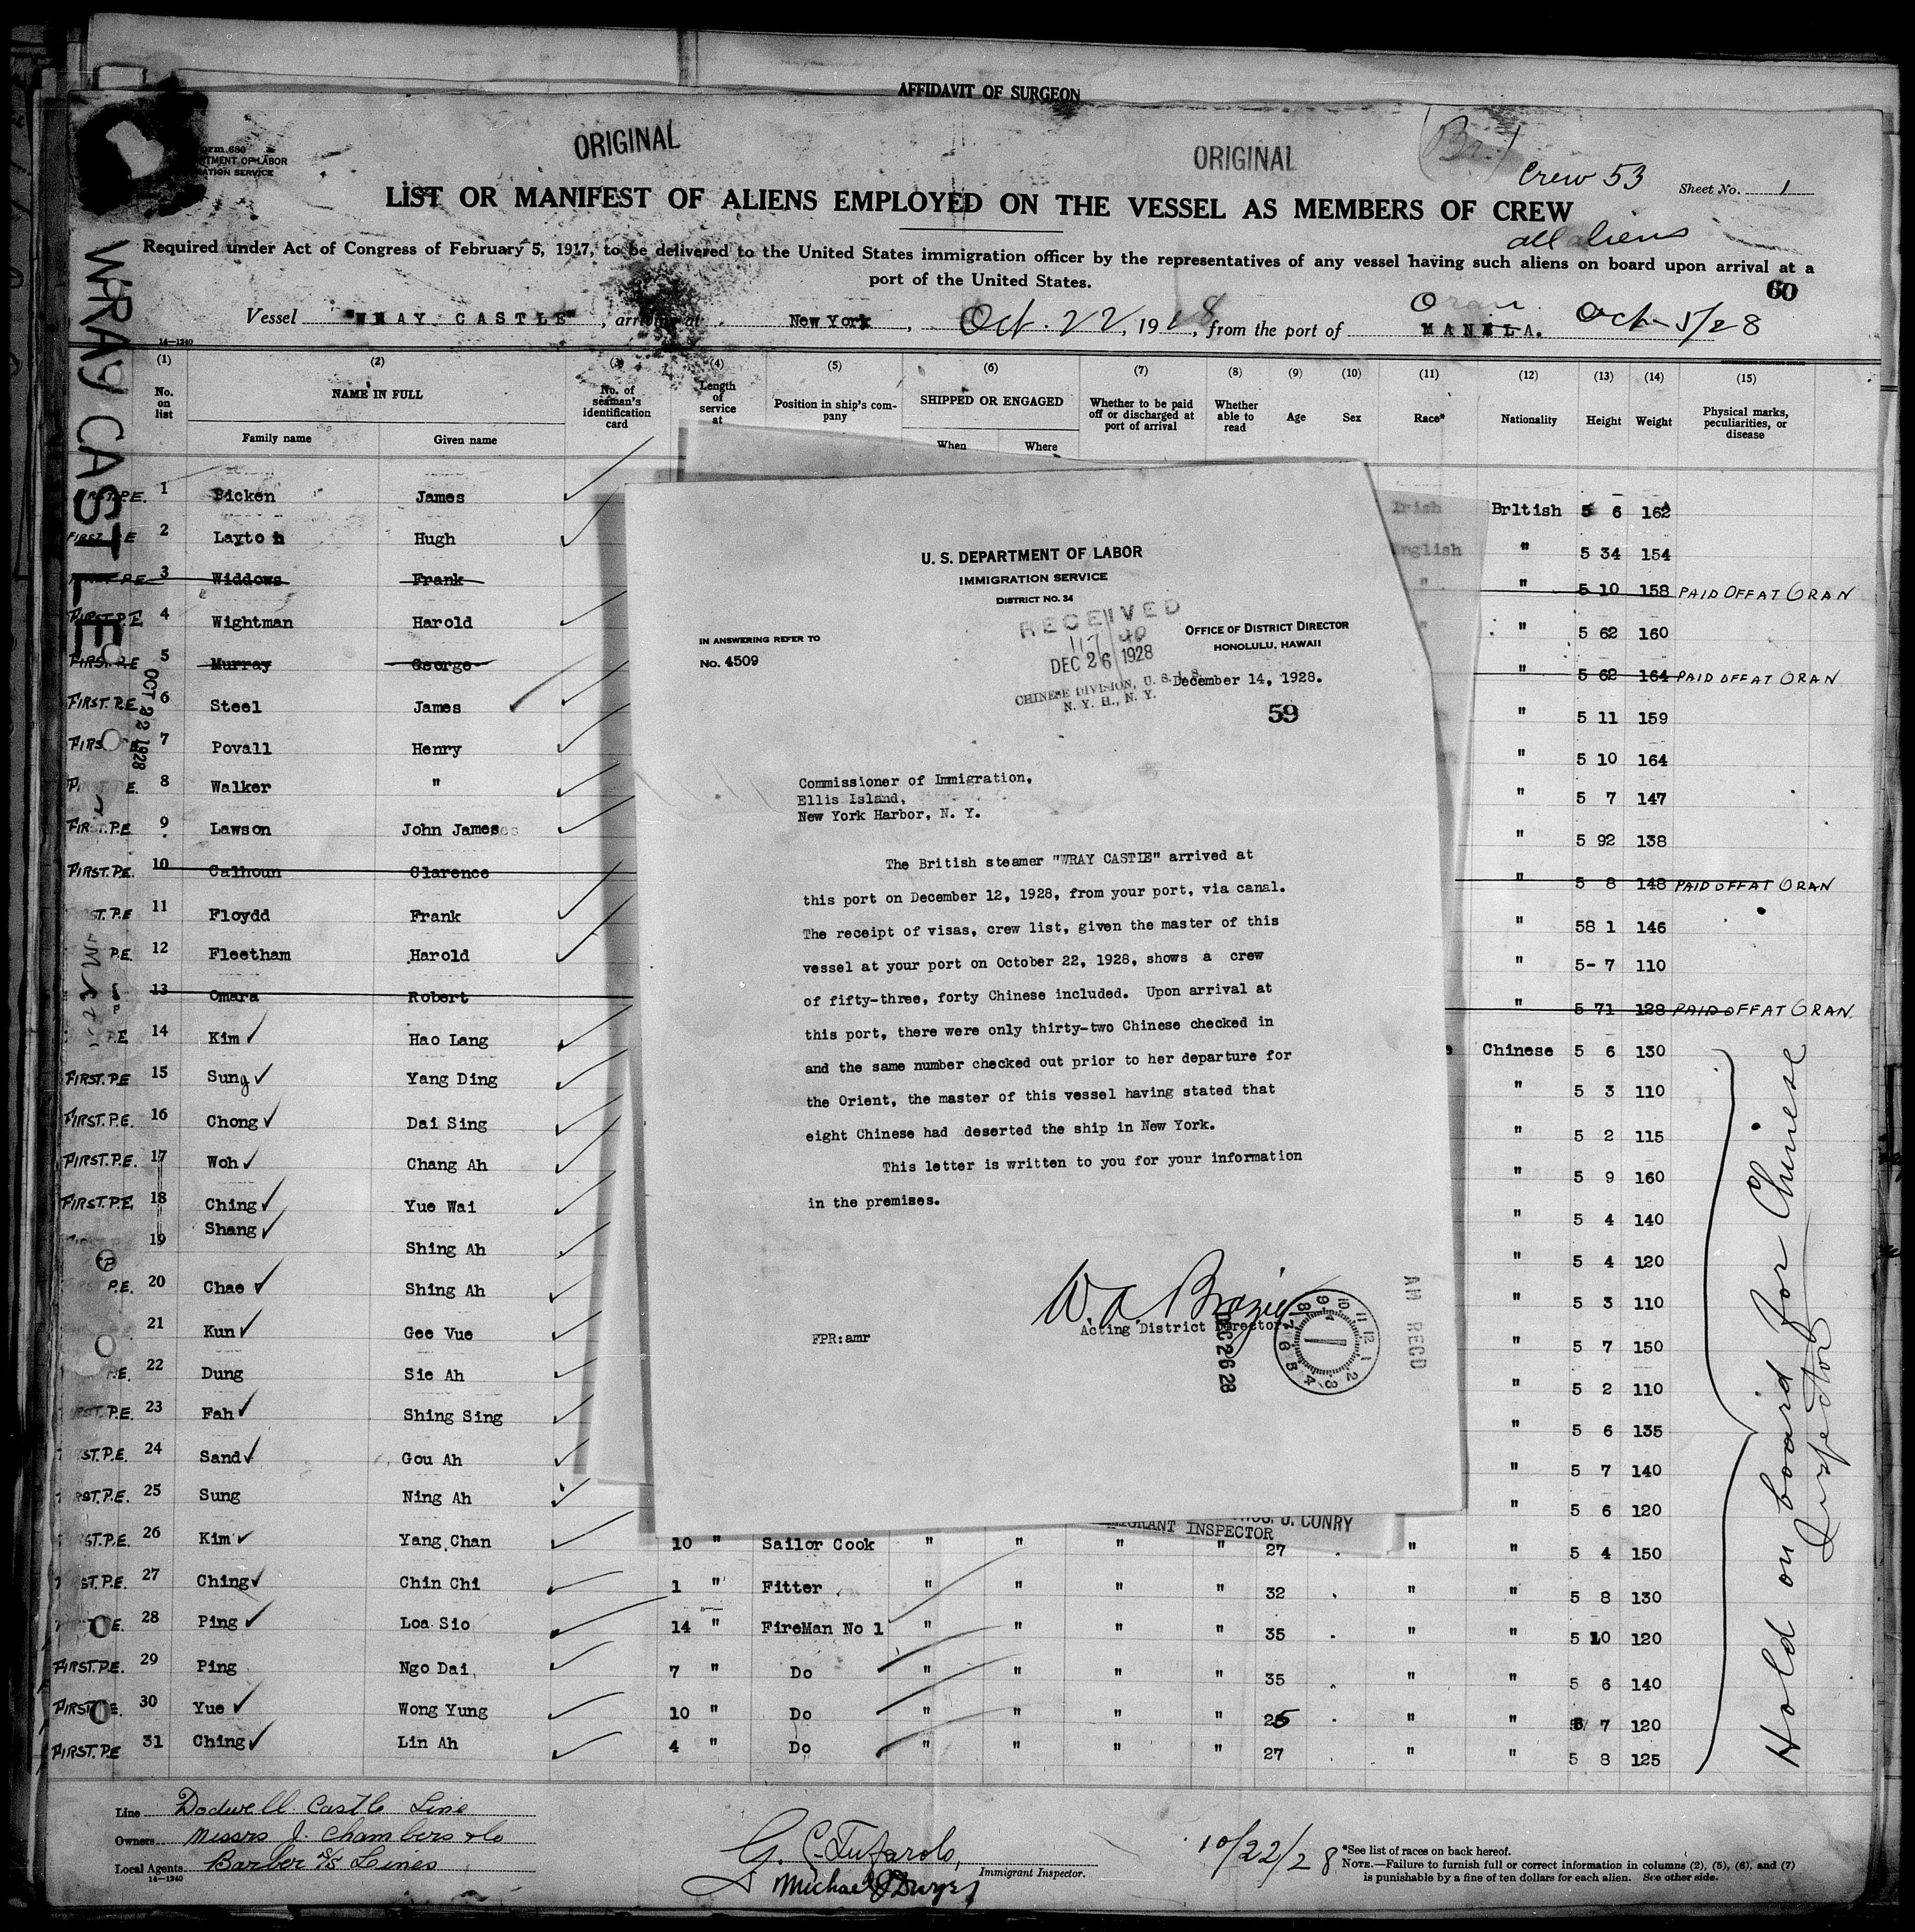 AFFIDAVIT OF SURGEON
ORIGINAL
ORIGINAL
(Br.)
Crew 53
Sheet No. 1
LIST OR MANIFEST OF ALIENS EMPLOYED ON THE VESSEL AS MEMBERS OF CREW
all aliens
Required under Act of Congress of February 5, 1917, to be delivered to the United States immigration officer by the representatives of any vessel having such aliens on board upon arrival at a
port of the United States.
60
Vessel "WRAY CASTLE", arriving at New York, Oct. 22, 1928, from the port of MANILA. Oran Oct-5/28
14—1240
WRAY CASTLE
OCT 22 1928
(1) (2) (3) (4) (5) (6) (7) (8) (9) (10) (11) (12) (13) (14) (15)
No. on list
NAME IN FULL
Family name
Given name
No. of seaman's identification card
Length of service at
Position in ship's company
SHIPPED OR ENGAGED
When
Where
Whether to be paid off or discharged at port of arrival
Whether able to read
Age
Sex
Race*
Nationality
Height
Weight
Physical marks, peculiarities, or disease
FIRST.P.E. 1 Bicken James Irish British 5 6 162
FIRST P.E 2 Layton Hugh English " 5 34 154
3 Widdows Frank " " 5 10 158 PAID OFF AT ORAN
FIRST.P.E 4 Wightman Harold " " 5 62 160
FIRST.P.E 5 Murray George " 5 62 164 PAID OFF AT ORAN
FIRST. P.E 6 Steel James " 5 11 159
7 Povall Henry " 5 10 164
8 Walker " " 5 7 147
FIRST.P.E 9 Lawson John James " 5 92 138
FIRST.P.E. 10 Calhoun Clarence " 5 8 148 PAID OFF AT ORAN
11 Floydd Frank " 58 1 146
P.E. 12 Fleetham Harold " 5- 7 110
13 Omara Robert " 5 71 128 PAID OFF AT ORAN
P.E 14 Kim Hao Lang Chinese 5 6 130
FIRST.P.E 15 Sung Yang Ding " 5 3 110
FIRST.P.E. 16 Chong Dai Sing " 5 2 115
FIRST.P.E. 17 Woh Chang Ah " 5 9 160
FIRST.P.E. 18 Ching Yue Wai " 5 4 140
19 Shang Shing Ah " 5 4 120
P.E. 20 Chae Shing Ah " 5 3 110
21 Kun Gee Vue " 5 7 150
P.E. 22 Dung Sie Ah " 5 2 110
ST.P.E. 23 Fah Shing Sing " 5 6 135
ST.P.E. 24 Sand Gou Ah " 5 7 140
ST.P.E. 25 Sung Ning Ah " 5 6 120
ST.P.E. 26 Kim Yang Chan 10 " Sailor Cook " " " " 27 " " 5 4 150
ST.P.E. 27 Ching Chin Chi 1 " Fitter " " " " 32 " " 5 8 130
28 Ping Loa Sio 14 " FireMan No 1 " " " " 35 " " 5 10 120
FIRST.P.E. 29 Ping Ngo Dai 7 " Do " " " " 35 " " 5 6 140
30 Yue Wong Yung 10 " Do " " " " 25 " " 7 120
FIRST.P.E 31 Ching Lin Ah 4 " Do " " " " 27 " " 5 8 125
Hold on board for Chinese
Inspector
U. S. DEPARTMENT OF LABOR
IMMIGRATION SERVICE
DISTRICT NO. 34
RECEIVED
DEC 26 1928
CHINESE DIVISION, U. S. I. S.
N. Y. H., N. Y.
IN ANSWERING REFER TO
No. 4509
OFFICE OF DISTRICT DIRECTOR
HONOLULU, HAWAII
December 14, 1928.
59
Commissioner of Immigration,
Ellis Island,
New York Harbor, N. Y.
The British steamer "WRAY CASTLE" arrived at
this port on December 12, 1928, from your port, via canal.
The receipt of visas, crew list, given the master of this
vessel at your port on October 22, 1928, shows a crew
of fifty-three, forty Chinese included. Upon arrival at
this port, there were only thirty-two Chinese checked in
and the same number checked out prior to her departure for
the Orient, the master of this vessel having stated that
eight Chinese had deserted the ship in New York.
This letter is written to you for your information
in the premises.
Acting District Director.
FPR:amr
DEC 26 28
AM RECD
12 1 2 3 4 5 6 7 8 9 10 11
J. CONRY
IMMIGRANT INSPECTOR
Line Dodwell Castle Line
Owners Messrs J. Chambers & Co
Local Agents Barber S/S Lines
14—1240
Immigrant Inspector.
10/22/28
*See list of races on back hereof.
NOTE.—Failure to furnish full or correct information in columns (2), (5), (6), and (7)
is punishable by a fine of ten dollars for each alien. See other side.